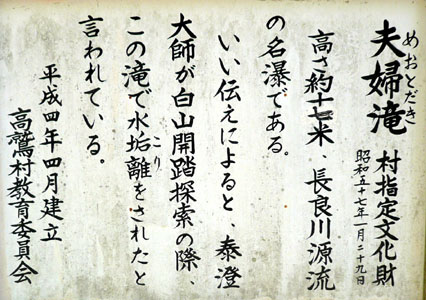 夫婦滝 村指定文化財
めおとだき
昭和五十七年一月二十九日
高さ約十七米、長良川源流
の名瀑である。
いい伝えによると、泰澄
大師が白山開踏探索の際、
この滝で水垢離をされたと
こり
言われている。
平成四年四月建立
高鷲村教育委員会